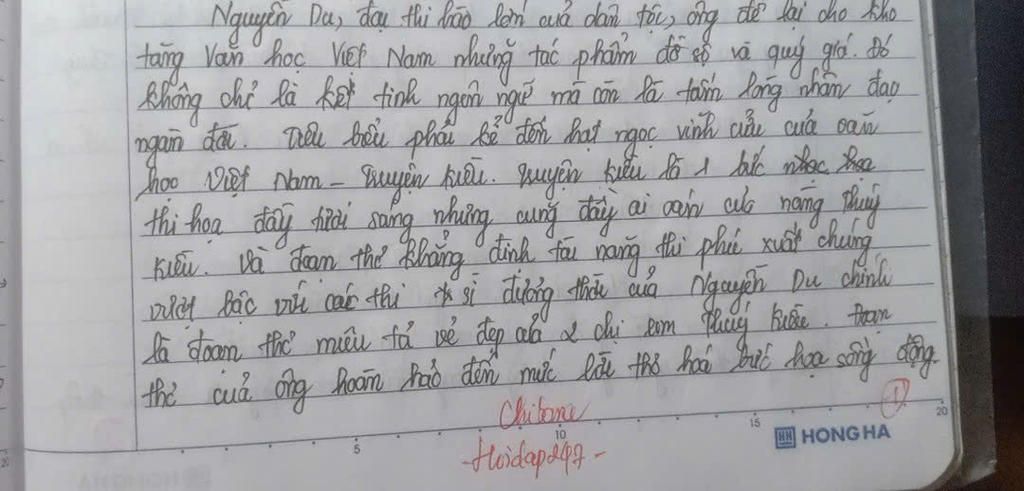 Nguyễn Du, đại thi hào lớn của dân tộc, ông để lại cho kho
tàng Văn học Việt Nam những tác phẩm đồ sộ và quý giá. Đó
không chỉ là kết tinh ngôn ngữ mà còn là tấm lòng nhân đạo
ngàn đời. Tiêu biểu phải kể đến hạt ngọc vĩnh cửu của văn
học Việt Nam - Truyện Kiều. Truyện Kiều là 1 bức
thi hoạ đầy tươi sáng nhưng cũng đầy ai oán của nàng Thuý
Kiều. Và đoạn thơ khẳng định tài năng thi phú xuất chúng
vượt bậc với các thi sĩ đương thời của Nguyễn Du chính
là đoạn thơ miêu tả vẻ đẹp của 2 chị em Thuý Kiều. Đoạn
thơ của ông hoàn hảo đến mức lời thơ hoá bức hoạ sống động
1
5 10 15 20
Chitone
HH HONG HA
-Hoidap247-